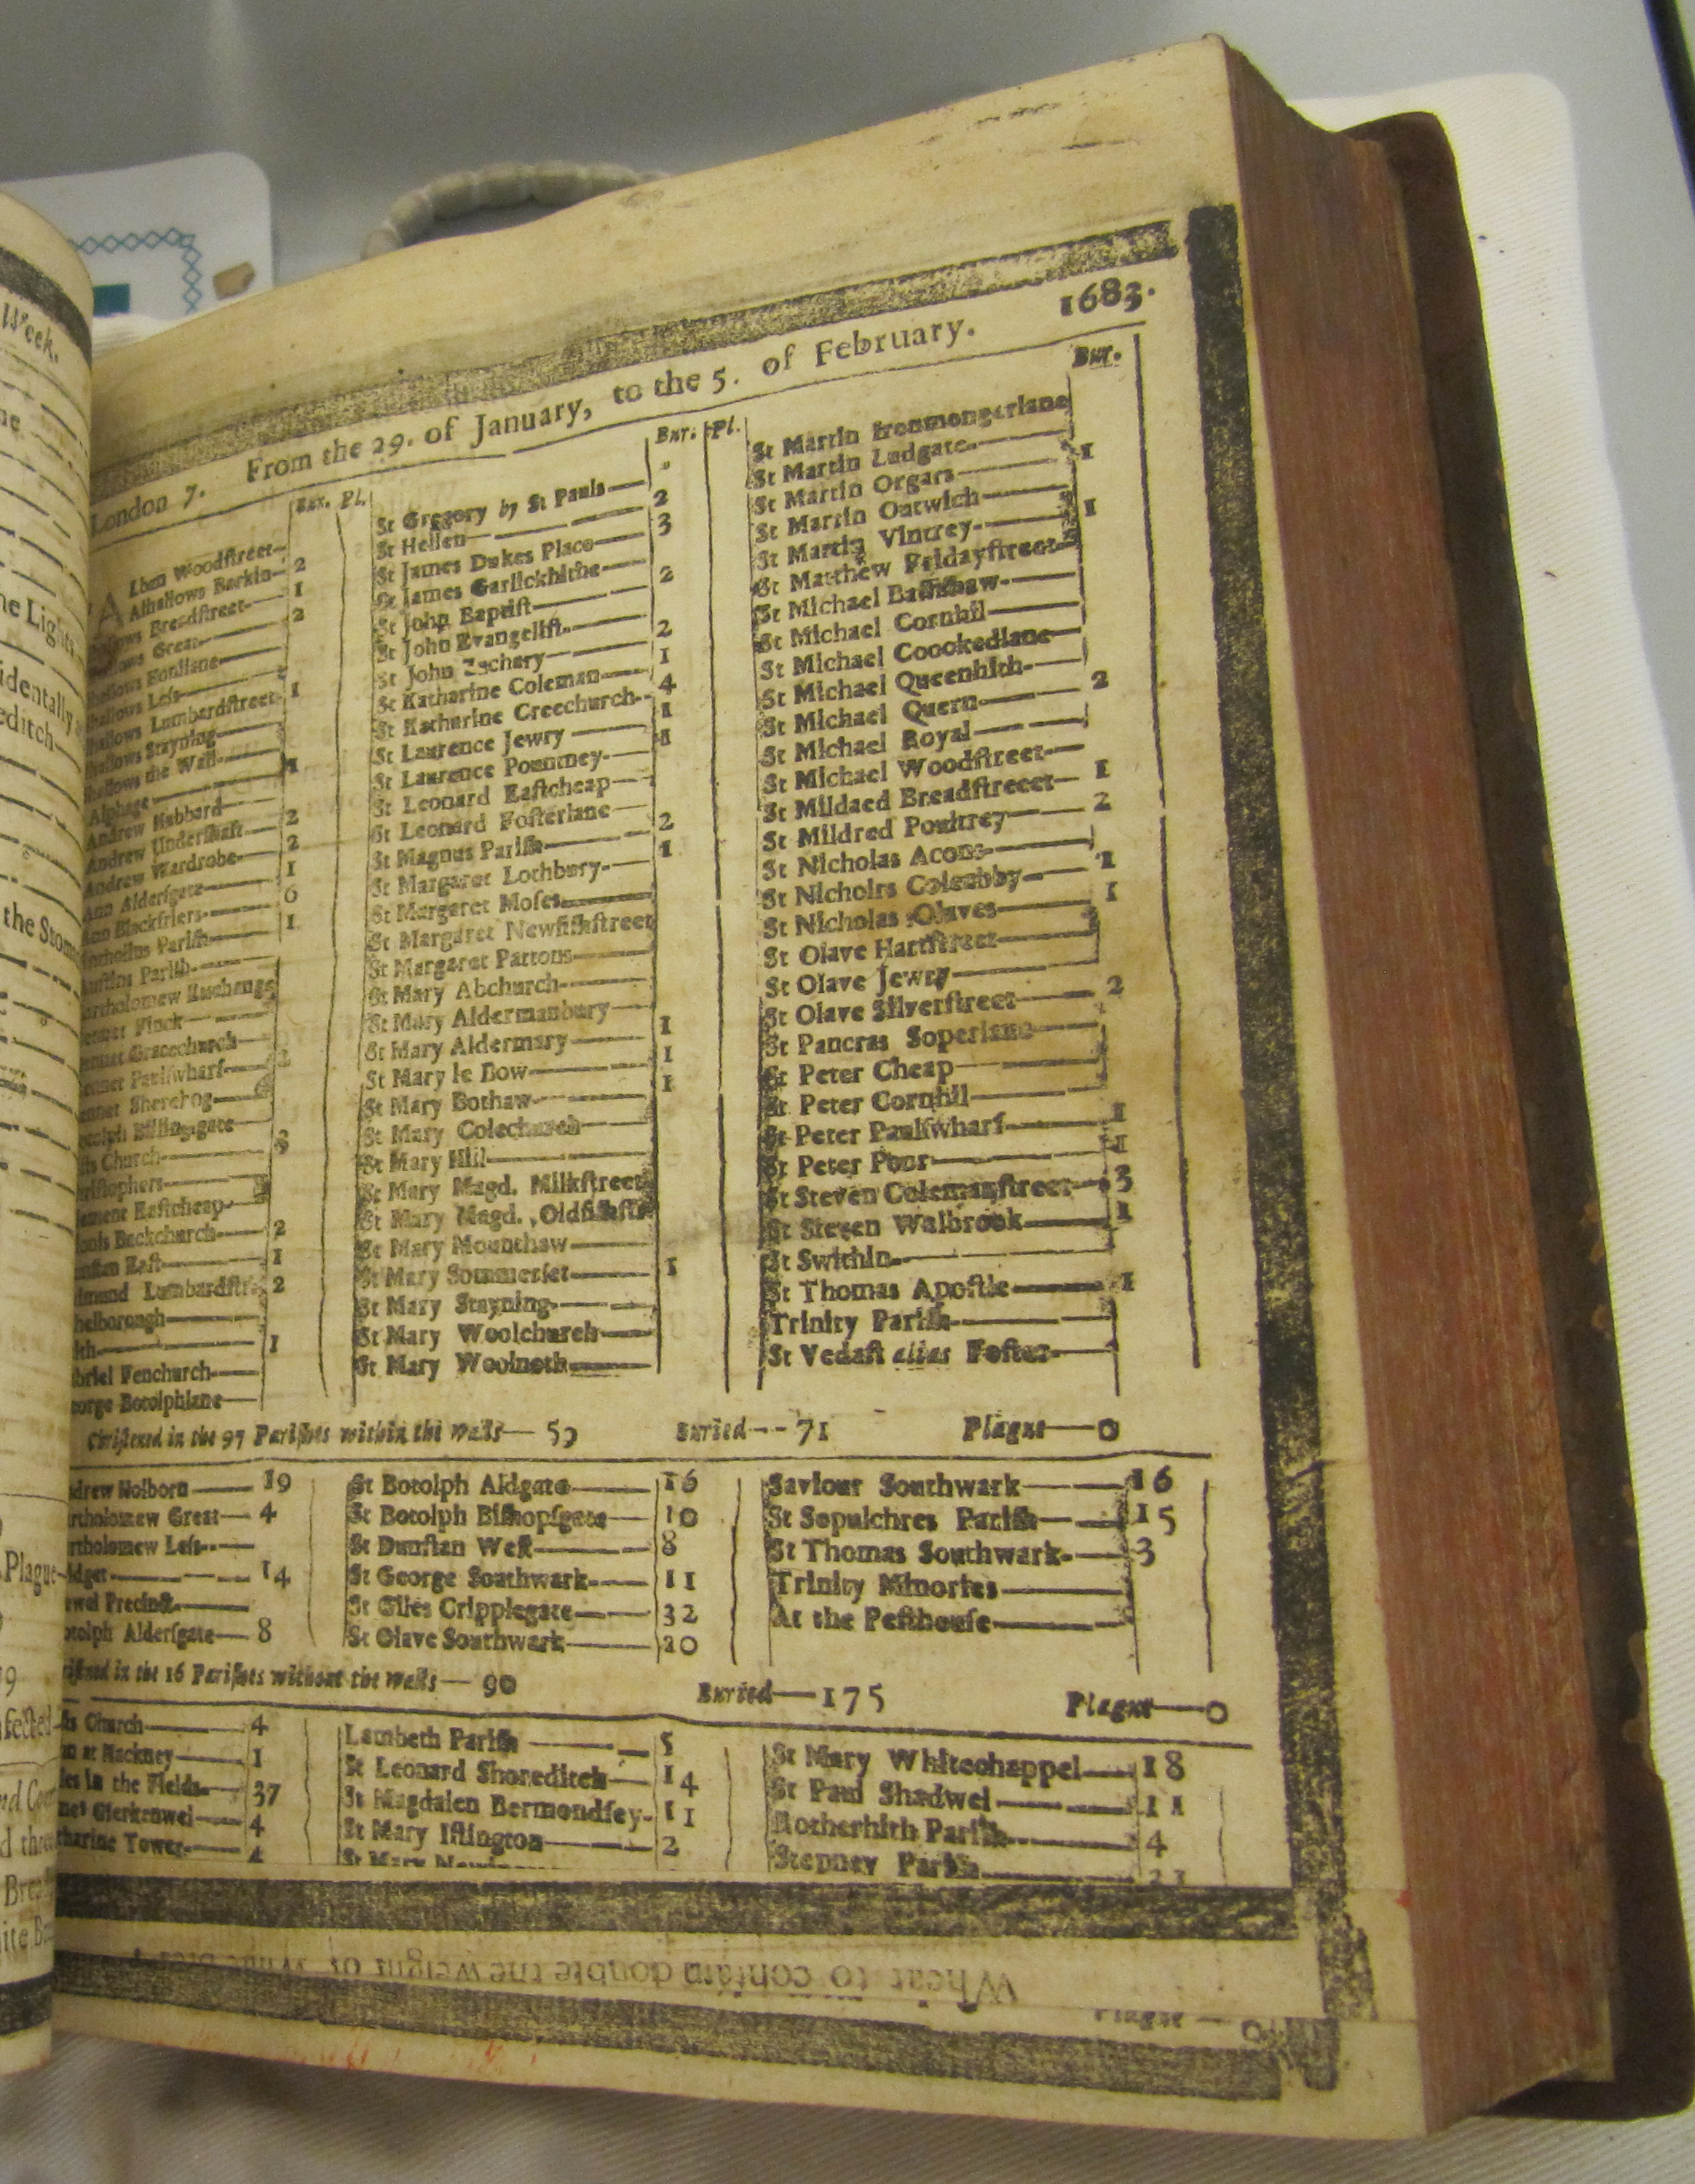 Week.
he Lights
identally
editch
the Stom
Plague
19
nfected
nd
d thre
London 7. From the 29. of January, to the 5. of February. 1683.
Bur. Pl.
Alban Woodſtreet
Alhallows Barkin 2
Breadſtreet 1
Great 2
Honilane
Leſs
Lumbardſtreet 1
Stayning
the Wall
Alphage 1
Andrew Hubbard
Andrew Underſhaft 2
Andrew Wardrobe 2
Ann Alderſgate 1
Ann Blackfriers 6
Pariſh 1
Pariſh
Finck
Gracechurch
Paulſwharf
Sherehog
Billingsgate
Church
Eaſtcheap
Backchurch 2
Eaſt 1
Lumbardſtr 2
1
Fenchurch
Botolphlane
Bur. Pl.
St Gregory by St Pauls
St Hellen 2
St James Dukes Place 3
St James Garlickhithe
St John Baptiſt 2
St John Evangeliſt
St John Zachary 2
St Katharine Coleman 1
St Katharine Creechurch 4
St Laurence Jewry 1
St Laurence Pountney 1
St Leonard Eaſtcheap
St Leonard Foſterlane
St Magnus Pariſh 2
St Margaret Lothbury 1
St Margaret Moſes
St Margaret Newfiſhſtreet
St Margaret Pattons
St Mary Abchurch
St Mary Aldermanbury
St Mary Aldermary 1
St Mary le Bow 1
St Mary Bothaw 1
St Mary Colechurch
St Mary Hill
St Mary Magd. Milkſtreet
St Mary Magd. Oldfiſhſtr
St Mary Mounthaw
St Mary Sommerſet 1
St Mary Stayning
St Mary Woolchurch
St Mary Woolnoth
Bur.
St Martin Ironmongerlane
St Martin Ludgate
St Martin Orgars 1
St Martin Outwich
St Martin Vintrey 1
St Matthew Fridayſtreet
St Michael Baſſiſhaw
St Michael Cornhil
St Michael Coookedlane
St Michael Queenhith
St Michael Quern 2
St Michael Royal
St Michael Woodſtreet
St Mildaed Breadſtreeet 1
St Mildred Poultrey 2
St Nicholas Acons
St Nicholrs Coleabby 1
St Nicholas Olaves 1
St Olave Hartſtreet
St Olave Jewry
St Olave Silverſtreet 2
St Pancras Soperlane
St Peter Cheap
St Peter Cornhil
St Peter Paulſwharf 1
St Peter Poor 1
St Steven Colemanſtreet 3
St Steven Walbrook 1
St Swithin
St Thomas Apoſtle 1
Trinity Pariſh
St Vedaſt alias Foſter
Chriſtened in the 97 Pariſhes within the walls— 59 Buried--71 Plague—0
drew Holborn 19
rtholomew Great 4
rtholomew Leſs
idget 14
ewel Precinct
otolph Alderſgate 8
St Botolph Aldgate 16
St Botolph Biſhopſgate 10
St Dunſtan Weſt 8
St George Southwark 11
St Giles Cripplegate 32
St Olave Southwark 20
Saviour Southwark 16
St Sepulchres Pariſh 15
St Thomas Southwark 3
Trinity Minories
At the Peſthouſe
riſtned in the 16 Pariſhes without the walls— 90 Buried—175 Plague—0
Church 4
at Hackney 1
les in the Fields 37
Clerkenwel 4
tharine Tower 4
Lambeth Pariſh 5
St Leonard Shoreditch 14
St Magdalen Bermondſey 11
St Mary Iſlington 2
St Mary
St Mary Whitechappel 18
St Paul Shadwel 11
Rotherhith Pariſh 4
Stepney Pariſh
Wheat to contain double the weight of
Plague — 0